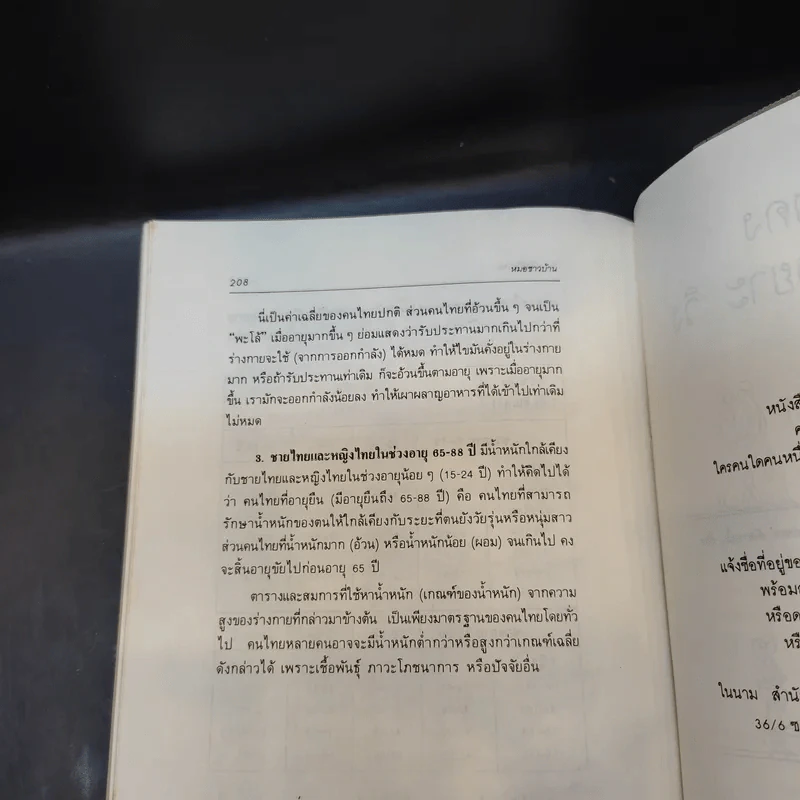 208
หมอชาวบ้าน
นี่เป็นค่าเฉลี่ยของคนไทยปกติ ส่วนคนไทยที่อ้วนขึ้น ๆ จนเป็น
"พะโล้" เมื่ออายุมากขึ้น ๆ ย่อมแสดงว่ารับประทานมากเกินไปกว่าที่
ร่างกายจะใช้ (จากการออกกำลัง) ได้หมด ทำให้ไขมันคั่งอยู่ในร่างกาย
มาก หรือถ้ารับประทานเท่าเดิม ก็จะอ้วนขึ้นตามอายุ เพราะเมื่ออายุมาก
ขึ้น เรามักจะออกกำลังน้อยลง ทำให้เผาผลาญอาหารที่ได้เข้าไปเท่าเดิม
ไม่หมด
3. ชายไทยและหญิงไทยในช่วงอายุ 65-88 ปี มีน้ำหนักใกล้เคียง
กับชายไทยและหญิงไทยในช่วงอายุน้อย ๆ (15-24 ปี) ทำให้คิดไปได้
ว่า คนไทยที่อายุยืน (มีอายุยืนถึง 65-88 ปี) คือ คนไทยที่สามารถ
รักษาน้ำหนักของตนให้ใกล้เคียงกับระยะที่ตนยังวัยรุ่นหรือหนุ่มสาว
ส่วนคนไทยที่น้ำหนักมาก (อ้วน) หรือน้ำหนักน้อย (ผอม) จนเกินไป คง
จะสิ้นอายุขัยไปก่อนอายุ 65 ปี
ตารางและสมการที่ใช้หาน้ำหนัก (เกณฑ์ของน้ำหนัก) จากความ
สูงของร่างกายที่กล่าวมาข้างต้น เป็นเพียงมาตรฐานของคนไทยโดยทั่ว
ไป คนไทยหลายคนอาจจะมีน้ำหนักต่ำกว่าหรือสูงกว่าเกณฑ์เฉลี่ย
ดังกล่าวได้ เพราะเชื้อพันธุ์ ภาวะโภชนาการ หรือปัจจัยอื่น
หนังสื
ใครคนใดคนหนึ่
แจ้งชื่อที่อยู่ขอ
พร้อม
หรือด
ในนาม สำนั
36/6 ซ